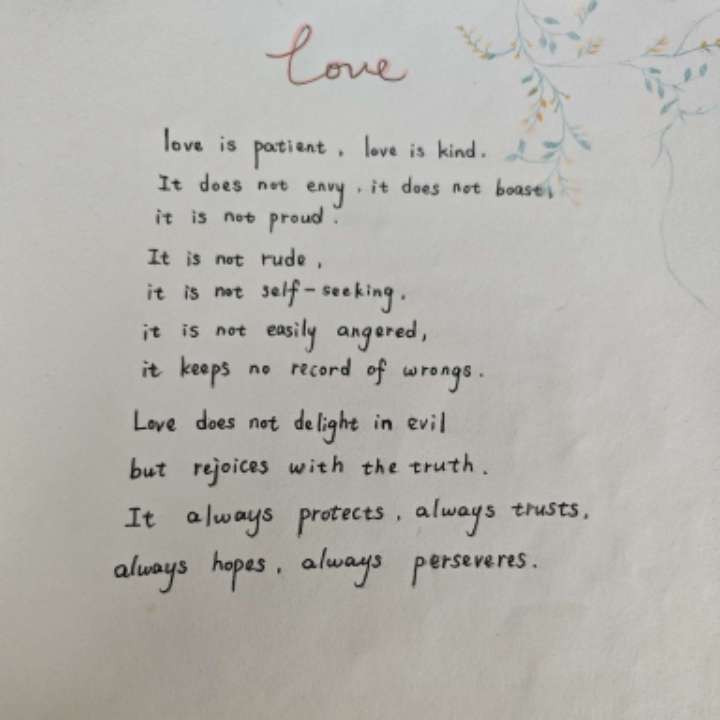 Love
love is patient, love is kind.
It does not envy, it does not boast,
it is not proud.
It is not rude,
it is not self-seeking,
it is not easily angered,
it keeps no record of wrongs.
Love does not delight in evil
but rejoices with the truth.
It always protects, always trusts,
always hopes, always perseveres.